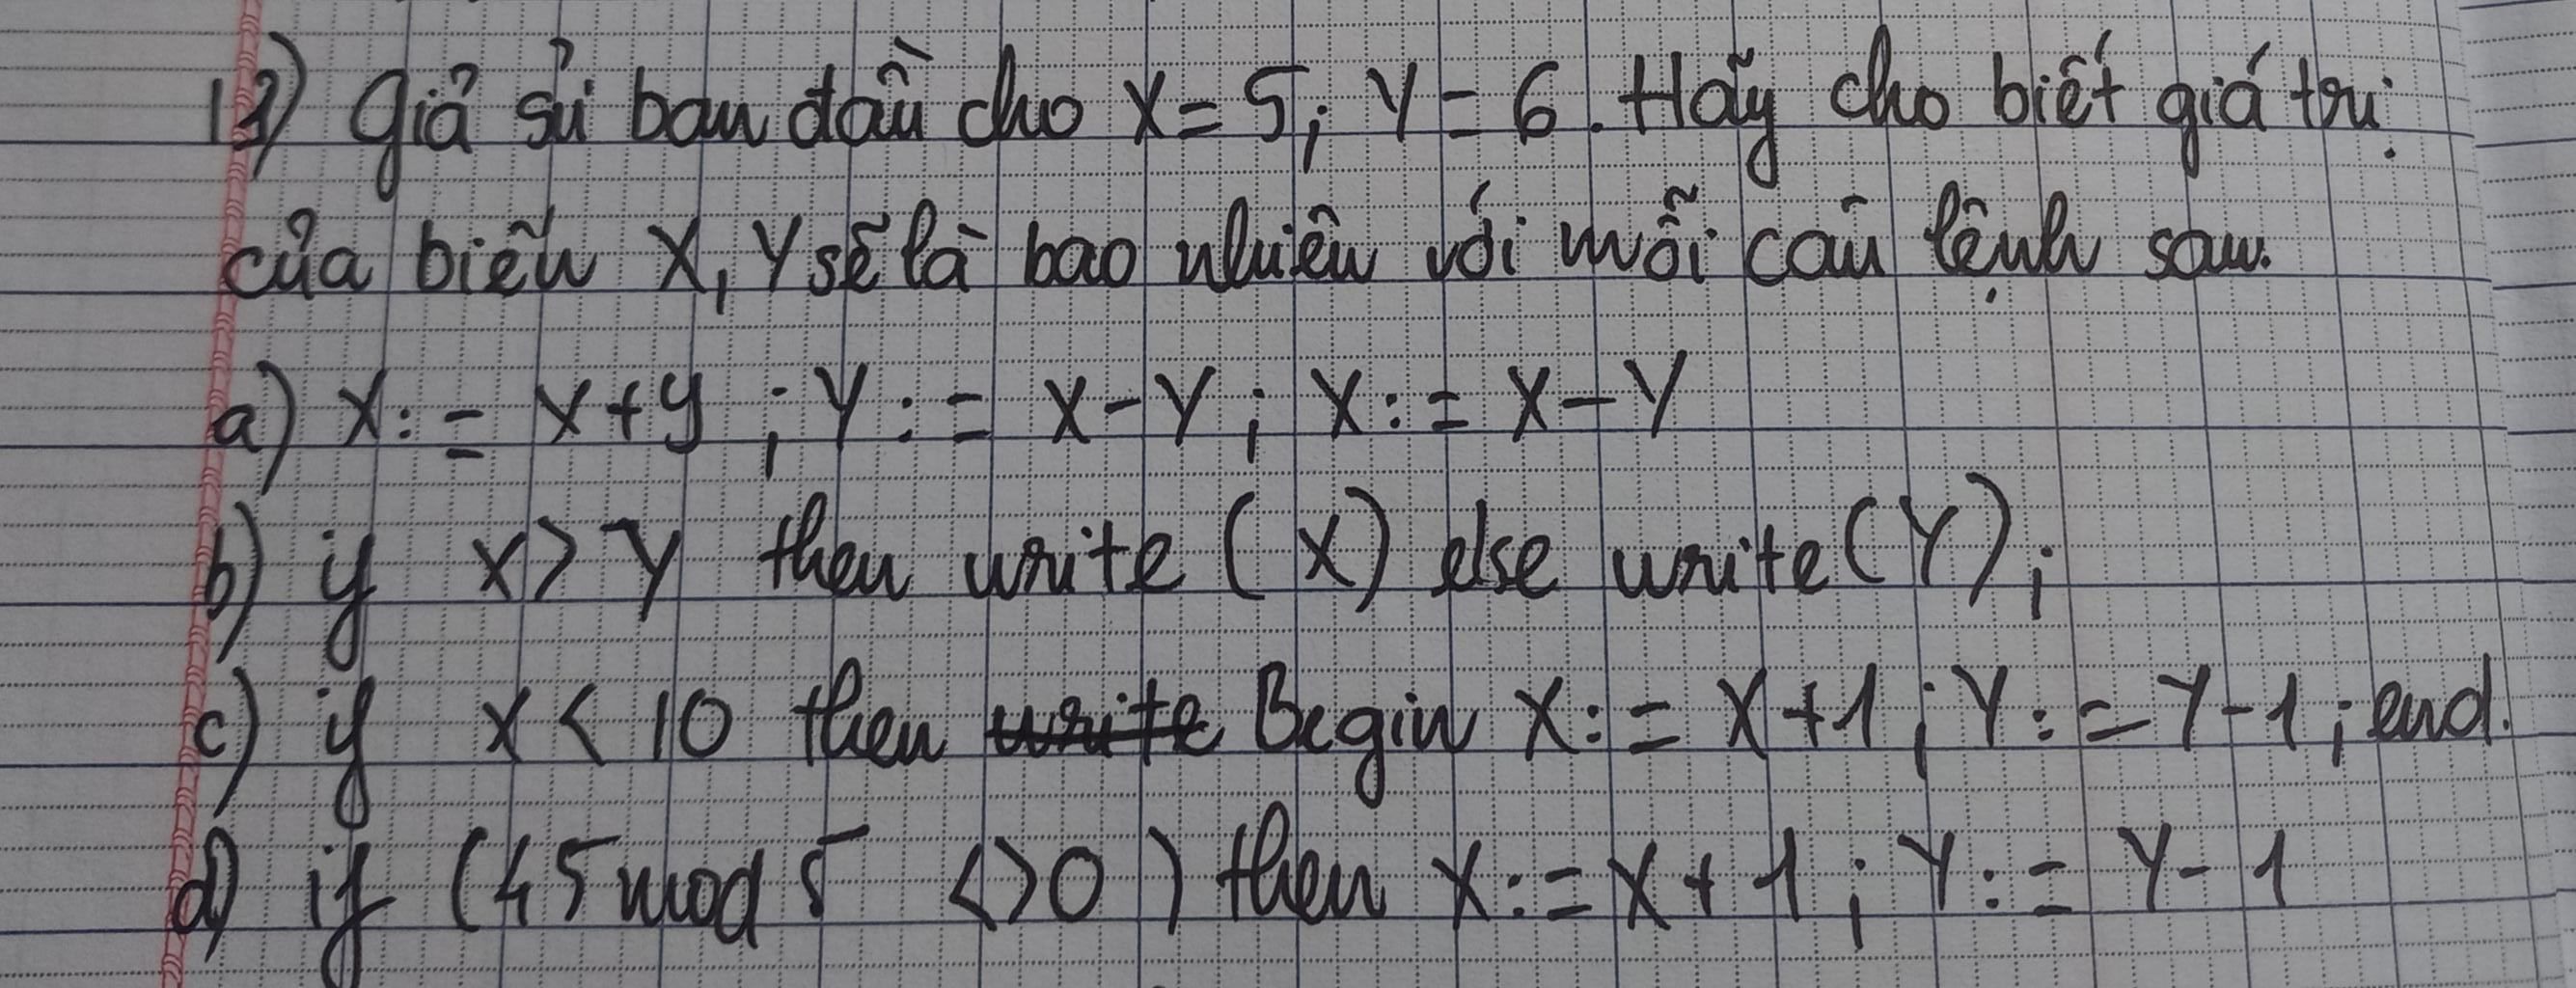 13) Giả sử ban đầu cho X = 5; Y = 6. Hãy cho biết giá trị
của biến X, Y sẽ là bao nhiêu với mỗi câu lệnh sau.
a) X:= X+y; Y:= X-Y; X:= X-Y
b) if X>Y then write (X) else write (Y);
c) if X< 10 then write Begin X:= X+1; Y:= Y-1; end.
d) if (45 mod 5 <>0) then X:= X+1; Y:= Y-1